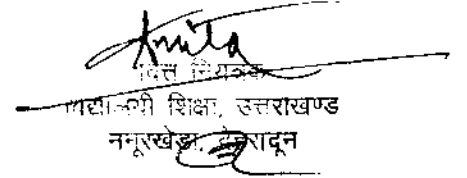 Anita
वित्त नियंत्रक
विद्यालयी शिक्षा, उत्तराखण्ड
ननूरखेड़ा, देहरादून